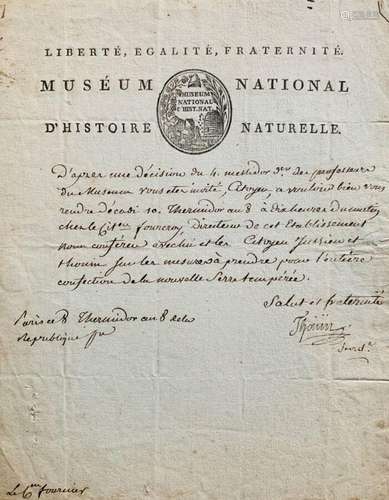 LIBERTÉ, EGALITÉ, FRATERNITÉ.
MUSÉUM NATIONAL
MUSEUM
NATIONAL
D'HIST. NAT.
D'HISTOIRE NATURELLE.
D'après une décision du 4. messidor des professeurs
du Museum vous etes invité, Citoyen, a vouloir bien vous
rendre décadi 10. Thermidor an 8 à dix heures du matin,
chez le Citen fourcroy, Directeur de cet Etablissement
pour conférer avec lui et les Citoyens Jussieu et
thouin sur les mesures à prendre pour l'entière
confection de la nouvelle Serre tempérée.
Salut et fraternité
Paris ce 8 Thermidor an 8 de la
République
Thouin
Le Cen